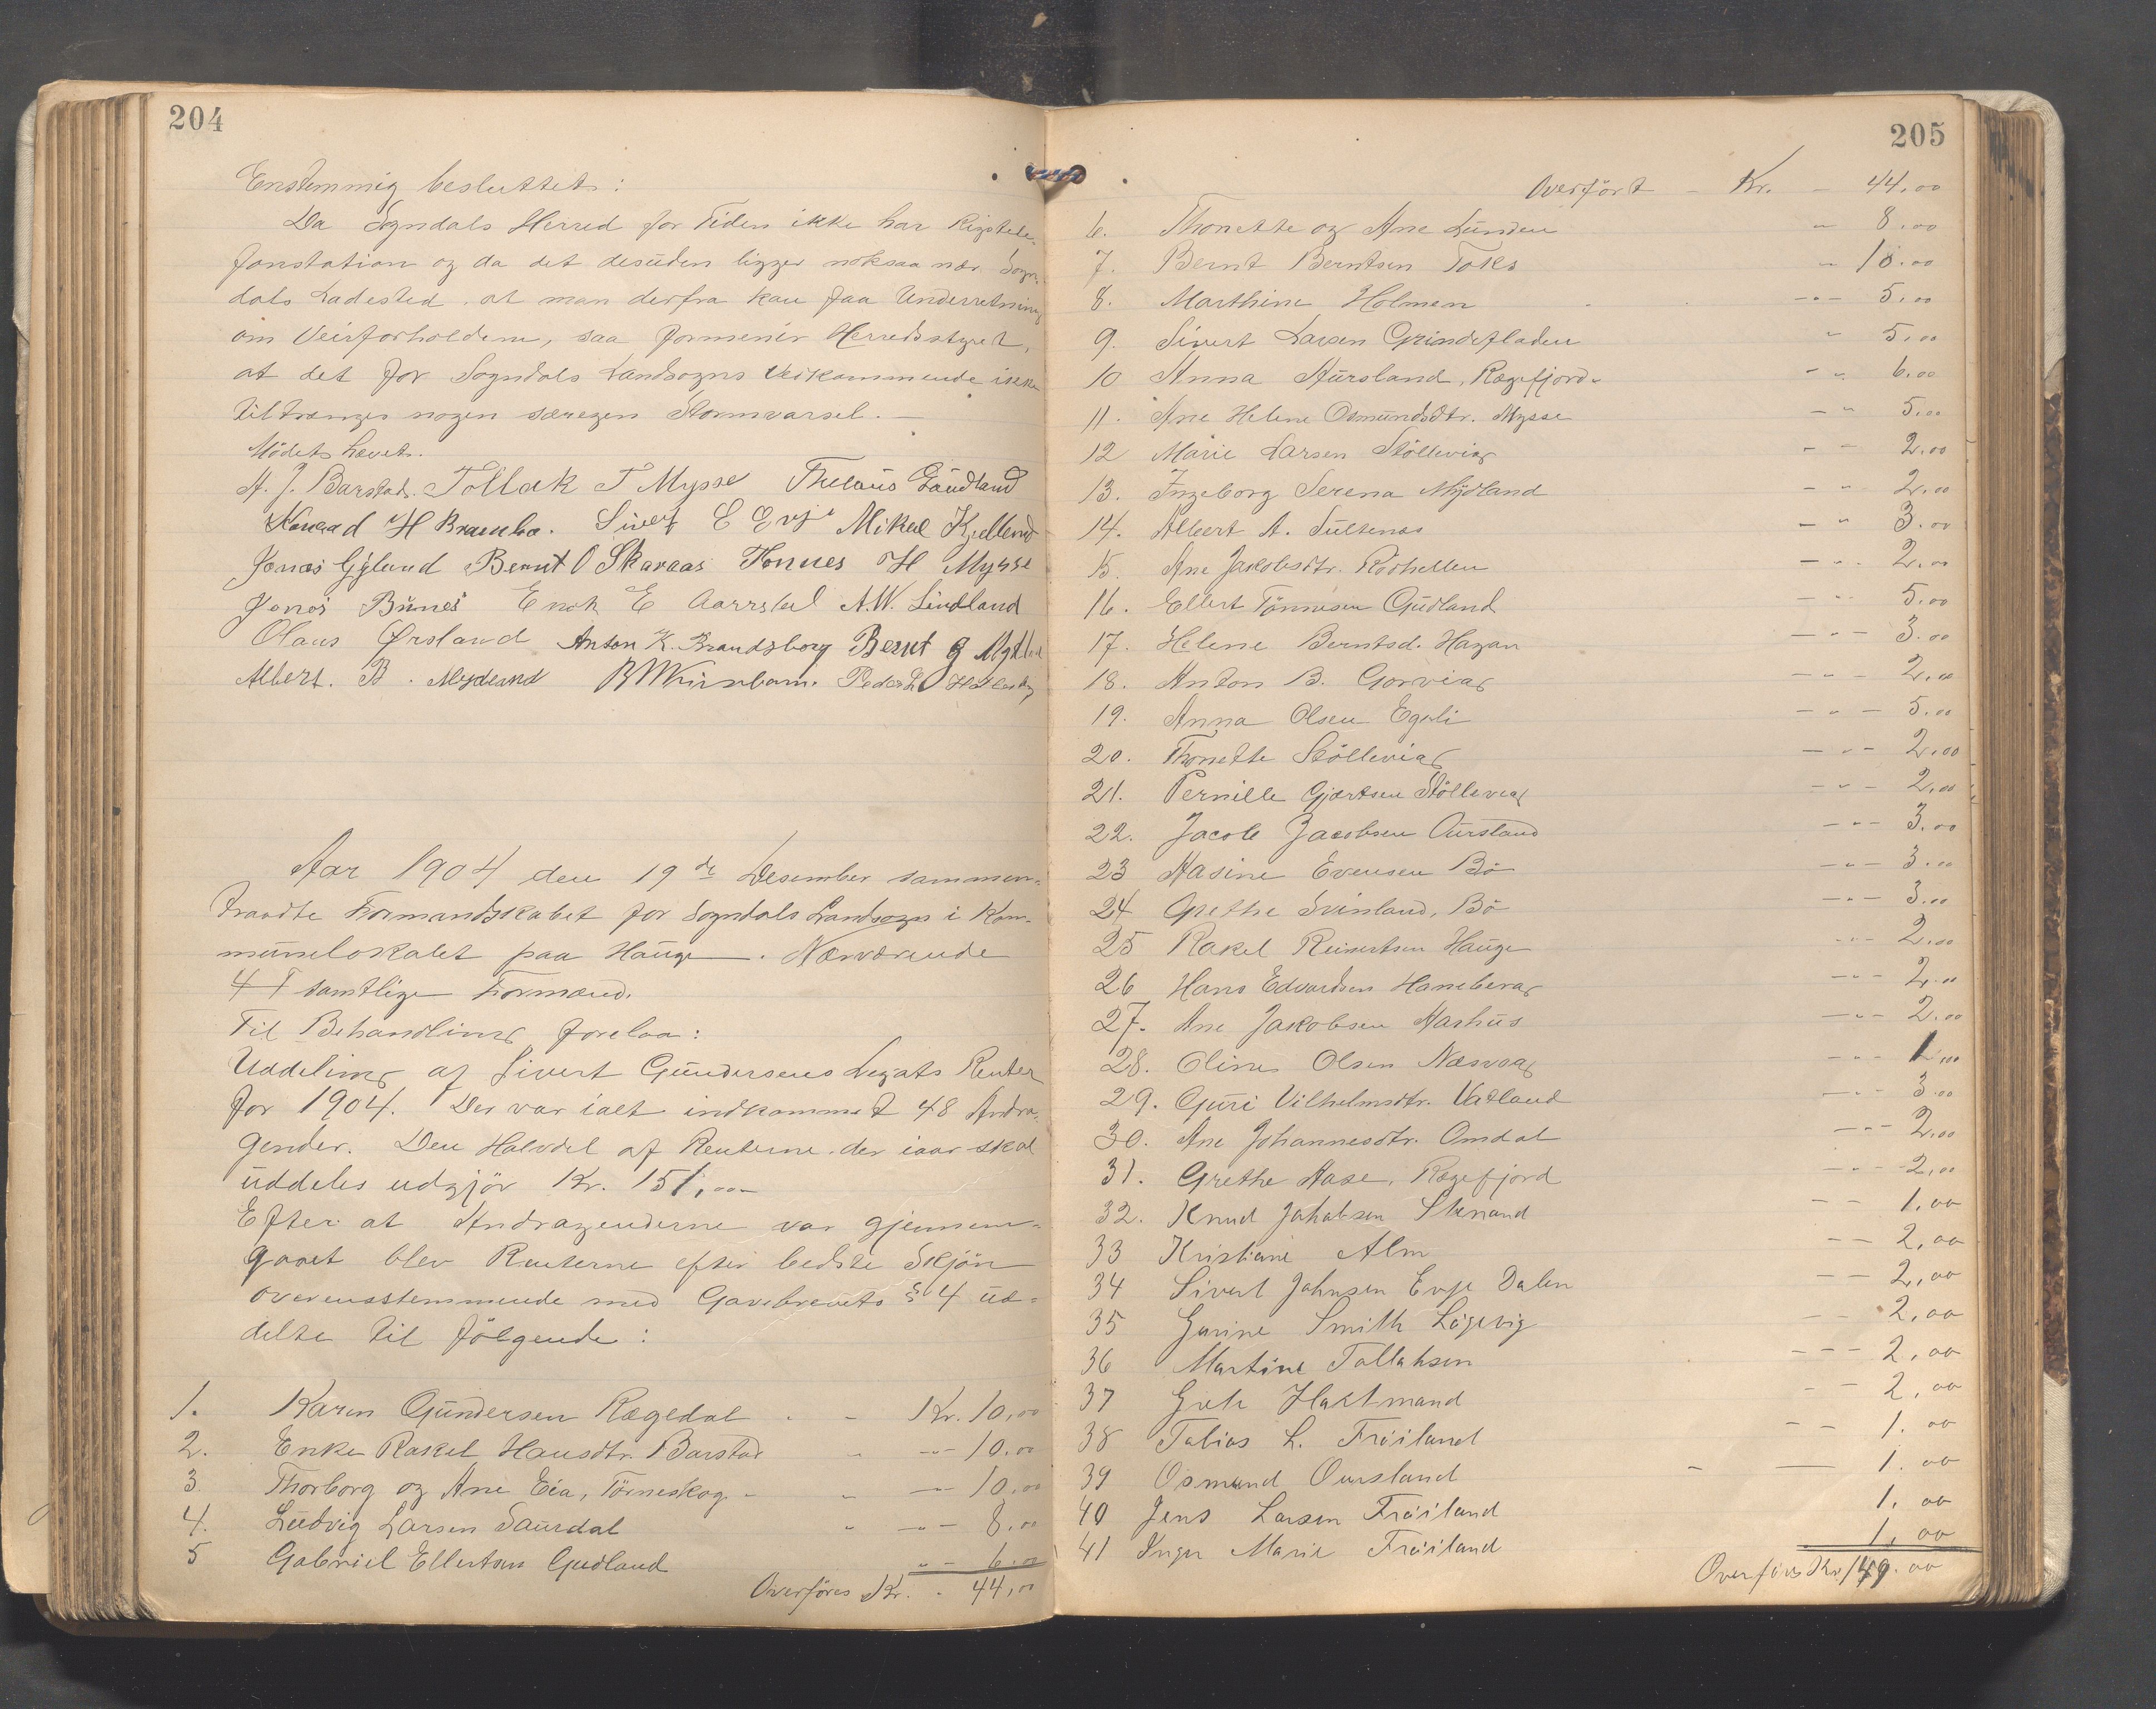 204
Enstemmig besluttet:
Da Sogndals Herred for Tiden ikke har Rigstele-
fonstation og da det desuden ligger noksaa nær Sogn-
dals Ladested, at man derfra kan faa Underretning
om Veirforholdene, saa formener Herredsstyret,
at det for Sogndals Landsogns Vedkommende ikke
tiltrænges nogen særegen Stormvarsel. —
Mødet hævet.
A. J. Barstad. Tollak T Mysse Gudland
Konrad H Sivert E Evje Mikal
Jonas Gyland Bernt O Skaraas Tonnes H Mysse
Jonas Enok E A. W. Lindland
Olaus Ørsland Anton K. Brandsborg Bernt G
Albert. B. Mydland Peder
Aar 1904 den 19de Desember sammen-
traadte Formandskabet for Sogndals Landsogn i Kom-
munelokalet paa Hauge. Nærværende
4 samtlige Formænd.
Til Behandling forelaa:
Uddeling af Sivert Gundersens Legats Renter
for 1904. Der var ialt indkommet 48 Andra-
gender. Den Halvdel af Renterne, der iaar skal
uddeles udgjør Kr. 151,00
Efter at Andragenderne var gjennem-
gaaet blev Renterne efter bedste Skjøn
overensstemmende med Gavebrevets § 4 ud-
delte til følgende:
1. Karen Gundersen Rægedal - Kr. 10,00
2. Enke Rakel Hansdtr. Barstad - " - 10.00
3. Thorborg og Ane Eia, Törneskog - " - 10,00
4. Ludvig Larsen Saurdal " - " - 8.00
5 Gabriel Ellertsen Gudland " - 6.00
Overføres Kr. - 44,00
205
Overført - Kr. - 44.00
6. Thonette og Ane Lunden " 8.00
7. Bernt Berntsen Toks - 10.00
8. Marthine Holmen - " - 5.00
9. Sivert Larsen Grindefladen " 5.00
10 Anna Aursland, Rægefjord - " 6.00
11. Ane Helene Osmundsdtr. Mysse - " 5.00
12 Marie Larsen Stölleviag - - 2.00
13. Ingeborg Serena Mydland - " 2.00
14. Albert A. Sultenas - " 3.00
15. Ane Jakobsdtr. Rödhellen - " - 2.00
16. Ellert Tönnesen Gudland - " 5.00
17. Helene Berntsd. Hagan - " - 3.00
18. Anton B. Gorviag - " - 2.00
19. Anna Olsen Egeli - " - 5.00
20. Thonette Stölleviag - " - 2.00
21. Pernille Gjertsen Stölleviag - " - 2.00
22. Jacob Jacobsen Oursland - " - 3.00
23 Hasine Evensen Bö - " - 3.00
24 Grethe Svinland, Bö - " - 3.00
25 Rakel Reinertsen Hauge - " - 2.00
26 Hans Edvardsen Hanebevag - " - 2.00
27. Ane Jakobsen Aashus - " - 2.00
28. Oline Olsen Næsvag - " - 1.00
29. Guri Vilhelmsdtr. Vatland - " - 3.00
30. Ane Johannesdtr. Omdal - " - 2.00
31. Grethe Aase, Rægefjord - " - 2.00
32. Knud Jakobsen - - 1.00
33 Kristiane Alm - - 2,00
34 Sivert Johnsen Evje Dalen - - 2,00
35 Gurine Smith Lögevig - - 2,00
36 Martine Tallaksen - - - 2,00
37 Hartmand - - 2,00
38 Tobias L. Fröiland - - 1.00
39 Osmund Oursland - — 1.00
40 Jens Larsen Fröiland 1.00
41 Inger Marie Fröiland 1,00
Overføres Kr 149.00